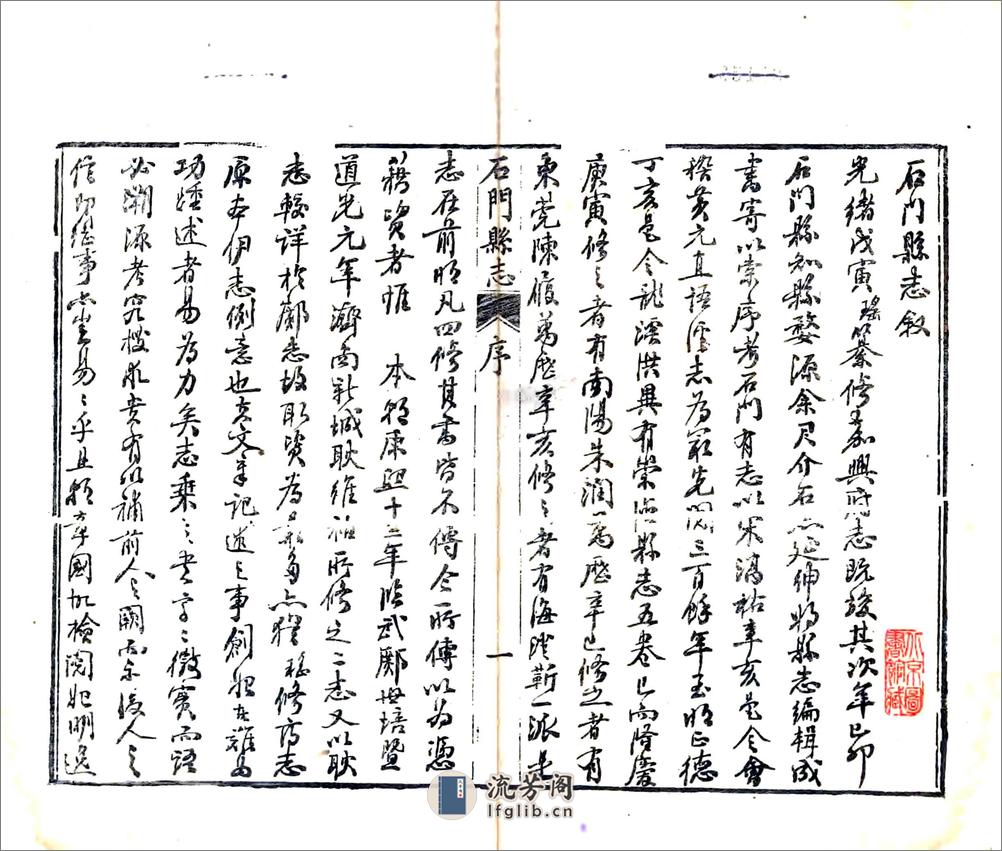 石門縣志敘
光緒戊寅瑤纂修嘉興府志既竣其次年己卯
石門縣知縣婺源余君介石亦延紳將縣志編輯成
書寄以索序考石門有志以宋淳祐辛亥邑令會
稽黃元直語溪志為最先閱三百餘年至明正德
丁亥邑令龍溪洪異有崇德縣志五卷已而隆慶
庚寅修之者有南陽朱潤萬歷辛巳修之者有
東莞陳履萬歷辛亥修之者有海澄靳一派是
石門縣志 序 一
志在前明凡四修其書皆不傳今所傳以為憑
藉資者惟 本朝康熙十二年臨武鄺世培暨
道光元年濟南新城耿維祜所修之二志又以耿
志較詳於鄺志故取資為最多亦猶修府志
原本伊志例意也夫文章記述之事創始者難為
功踵述者易為力矣志乘之書字字徵實而語
必溯源考究搜求貴有以補前人之闕而示後人之
信即繼事豈易易乎且朝章國故檢閱
北京圖書館藏
流芳阁
lfglib.cn